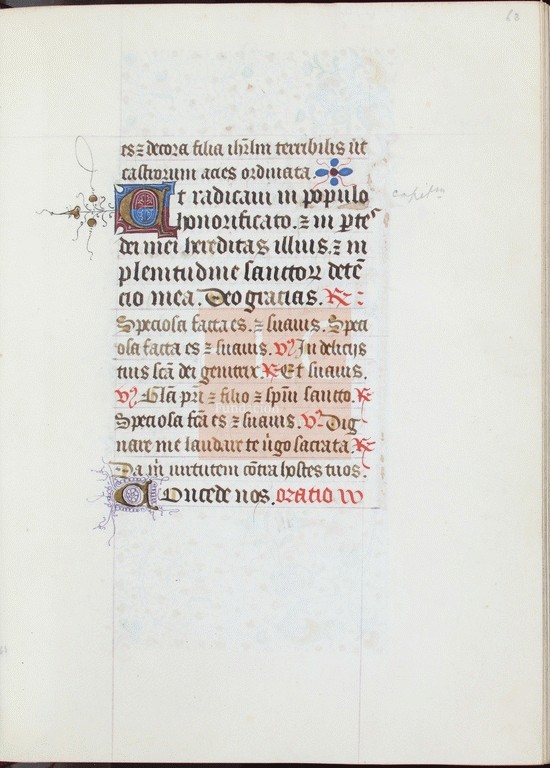 62
es ⁊ decora filia ihrlm terribilis ut
castrorum acies ordinata.
Et radicaui in populo
honorificato. ⁊ in ptes
dei mei hereditas illius. ⁊ in
plenitudine sanctoꝝ detē
cio mea. Deo gracias. ℟:
Speciosa facta es. ⁊ suauis. Speci
osa facta es ⁊ suauis. ℣ In delicijs
tuis scā dei genitrix. ℟ Et suauis.
℣ Glā pri ⁊ filio ⁊ spiui sancto. ℟
Speciosa fcā es ⁊ suauis. ℣ Dig
nare me laudare te uigo sacrata. ℟
Da m uirtutem cōtra hostes tuos.
Concede nos. oratio